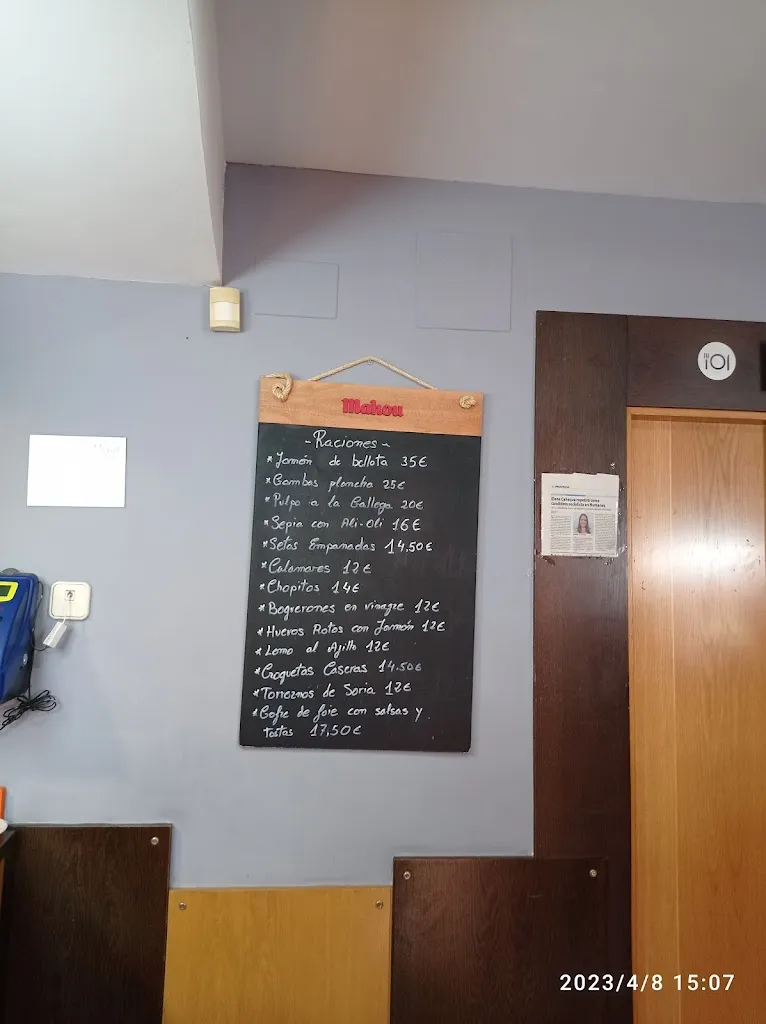 Mahou
- Raciones -
* Jamón de bellota 35€
* Gambas plancha 25€
* Pulpo a la Gallega 20€
* Sepia con Ali-Oli 16€
* Setas Empanadas 14,50€
* Calamares 12€
* Chopitos 14€
* Boquerones en vinagre 12€
* Huevos Rotos con Jamón 12€
* Lomo al Ajillo 12€
* Croquetas Caseras 14.50€
* Torreznos de Soria 12€
* Cofre de foie con salsas y
tostas 17,50€
2023/4/8 15:07